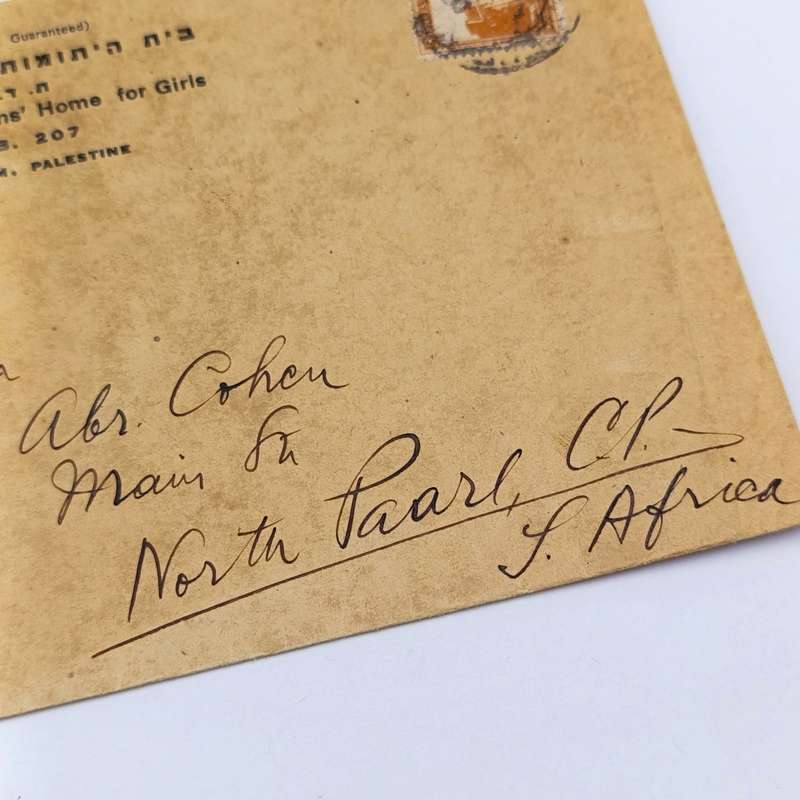 Guaranteed)
בית היתומות
ת. ד.
ns' Home for Girls
B. 207
M. PALESTINE
Abr. Cohen
Main Str
North Paarl, C.P.
S. Africa